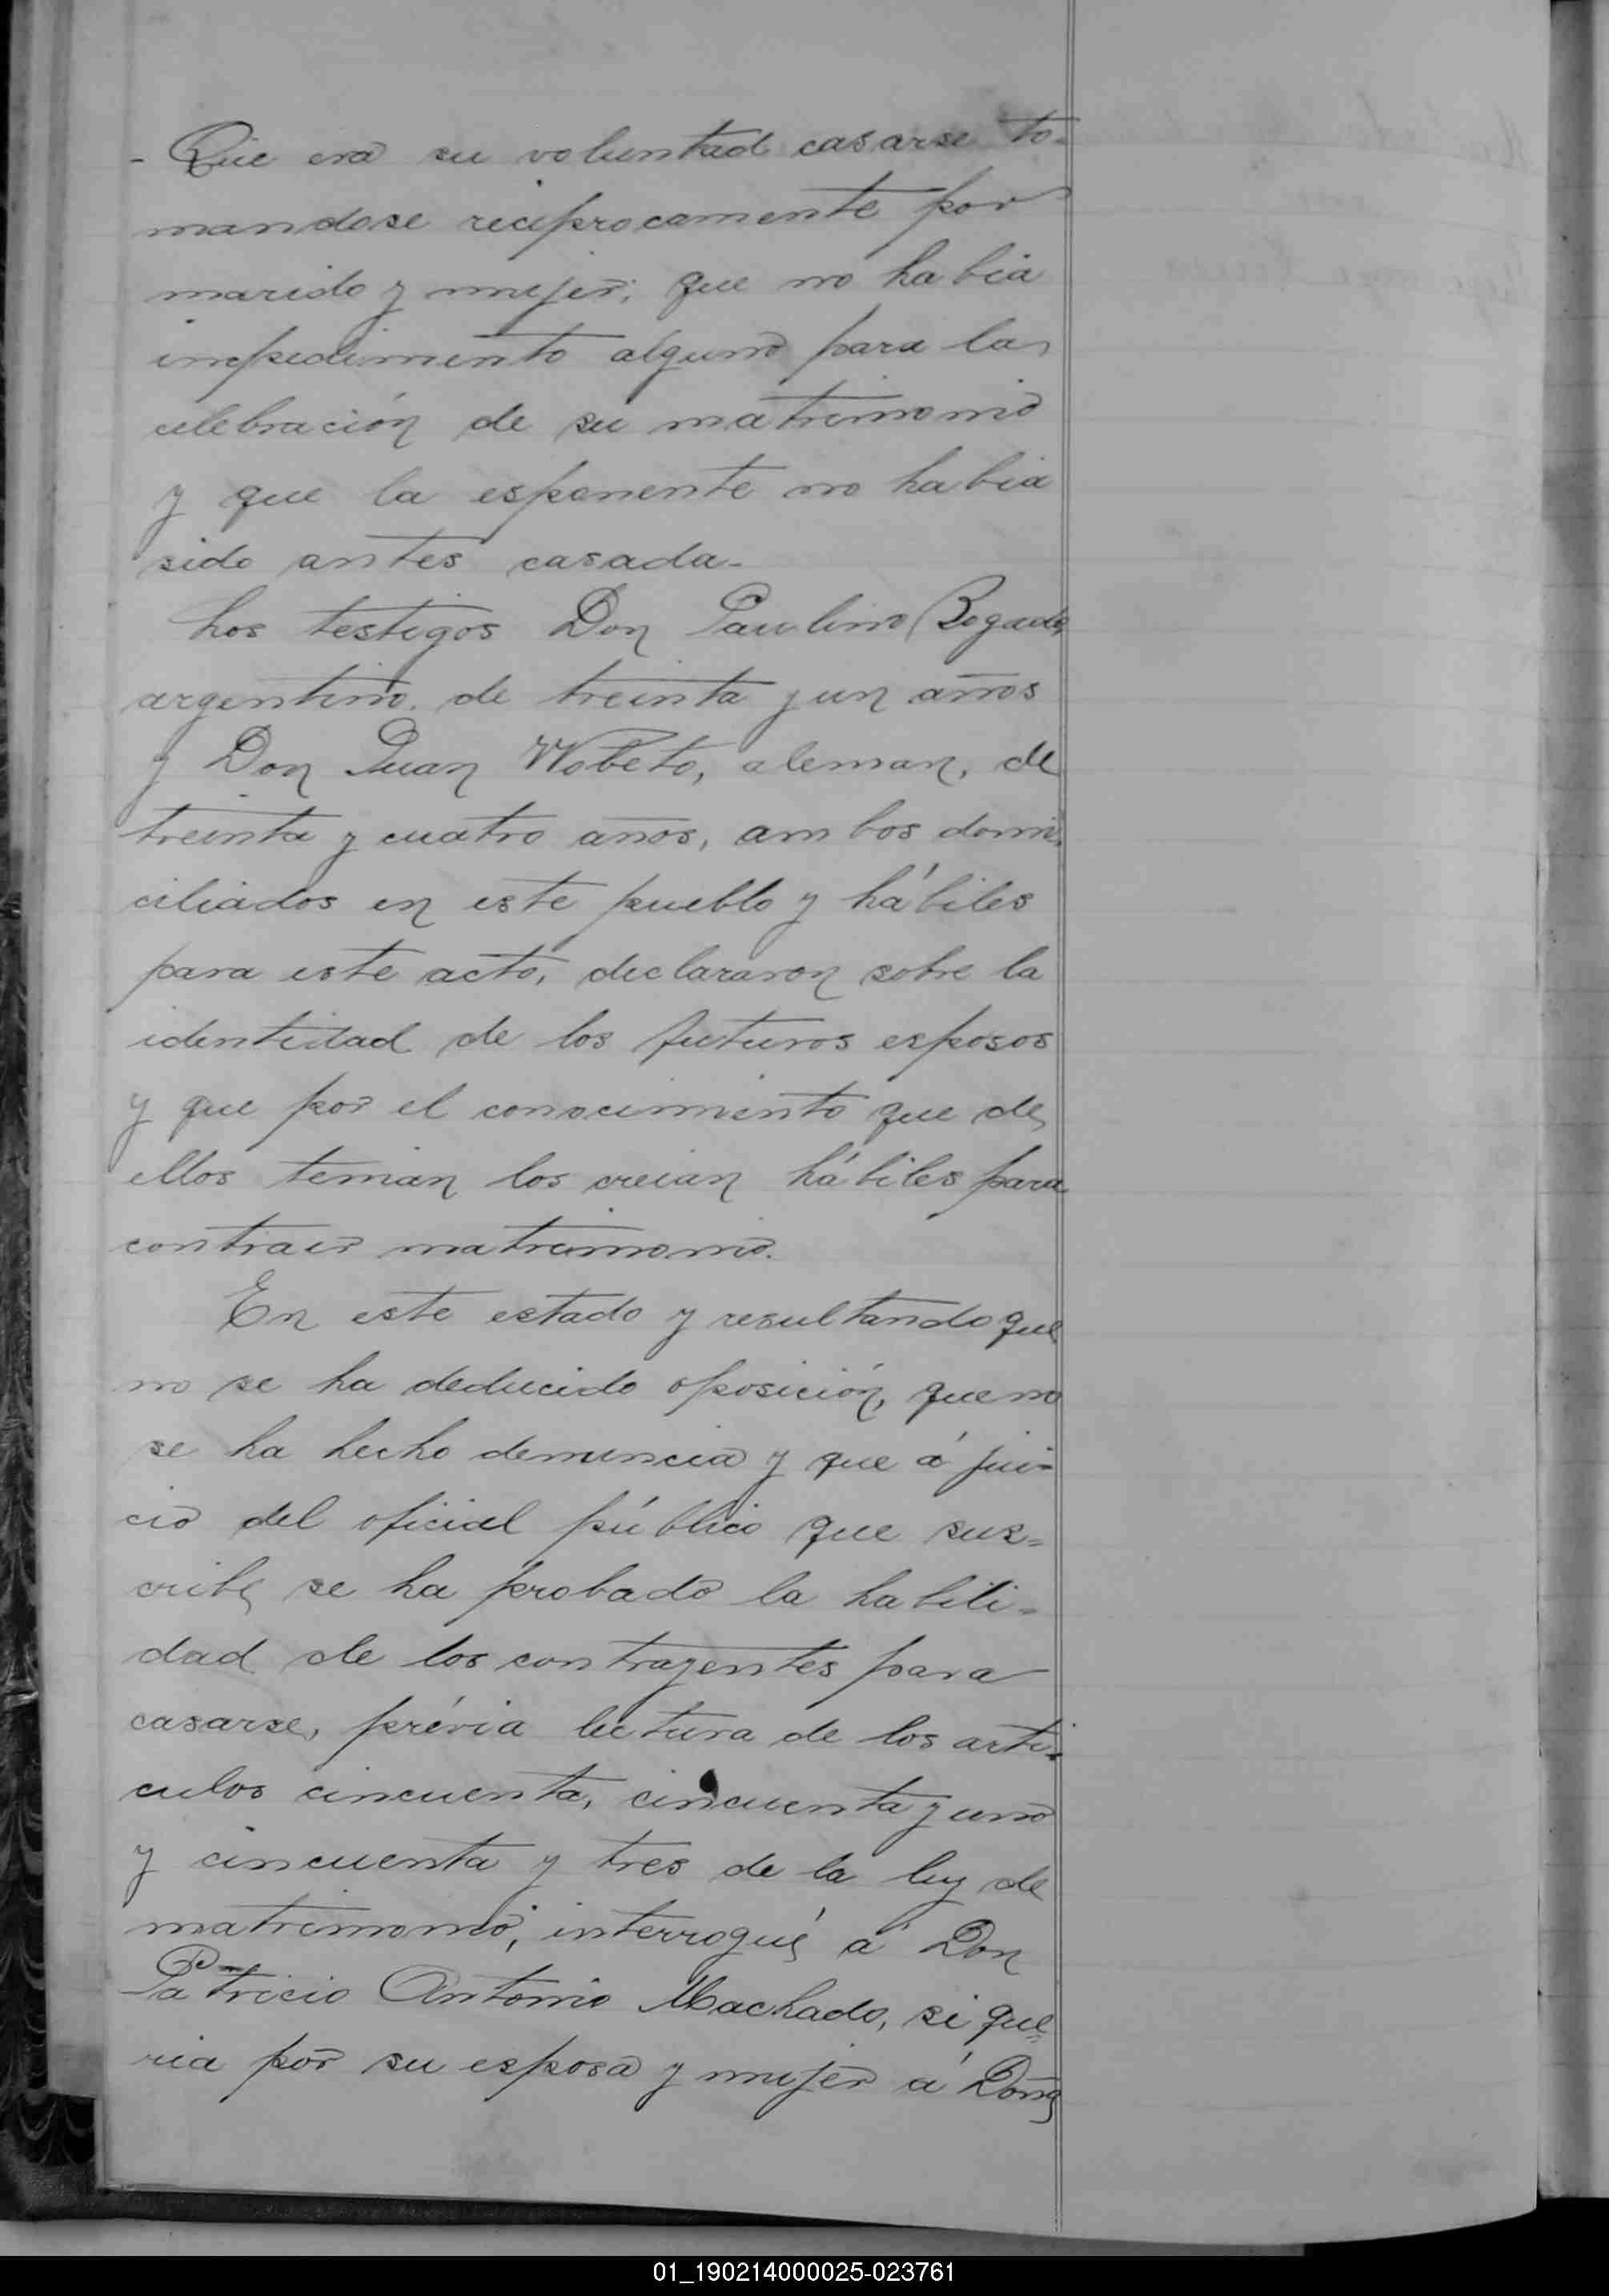 - Que era su voluntad casarse to-
mandose reciprocamente por
marido y mujer; que no habia
impedimento alguno para la
celebración de su matrimonio
y que la esponente no habia
sido antes casada-
Los testigos Don Paulino Bogado,
argentino, de treinta y un años
y Don Juan Wobeto, aleman, de
treinta y cuatro años, ambos domi-
ciliados en este pueblo y hábiles
para este acto, declararon sobre la
identidad de los futuros esposos
y que por el conocimiento que de
ellos tenian los creian hábiles para
contraer matrimonio.
En este estado y resultando que
no se ha deducido oposición, que no
se ha hecho denuncia y que á jui-
cio del oficial público que sus=
cribe se ha probado la habili=
dad de los contrayentes para
casarse, prévia lectura de los arti-
culos cincuenta, cincuenta y uno
y cincuenta y tres de la ley de
matrimonio; interrogué á Don
Patricio Antonio Machado, si que=
ria por su esposa y mujer á Doña
01_190214000025-023761